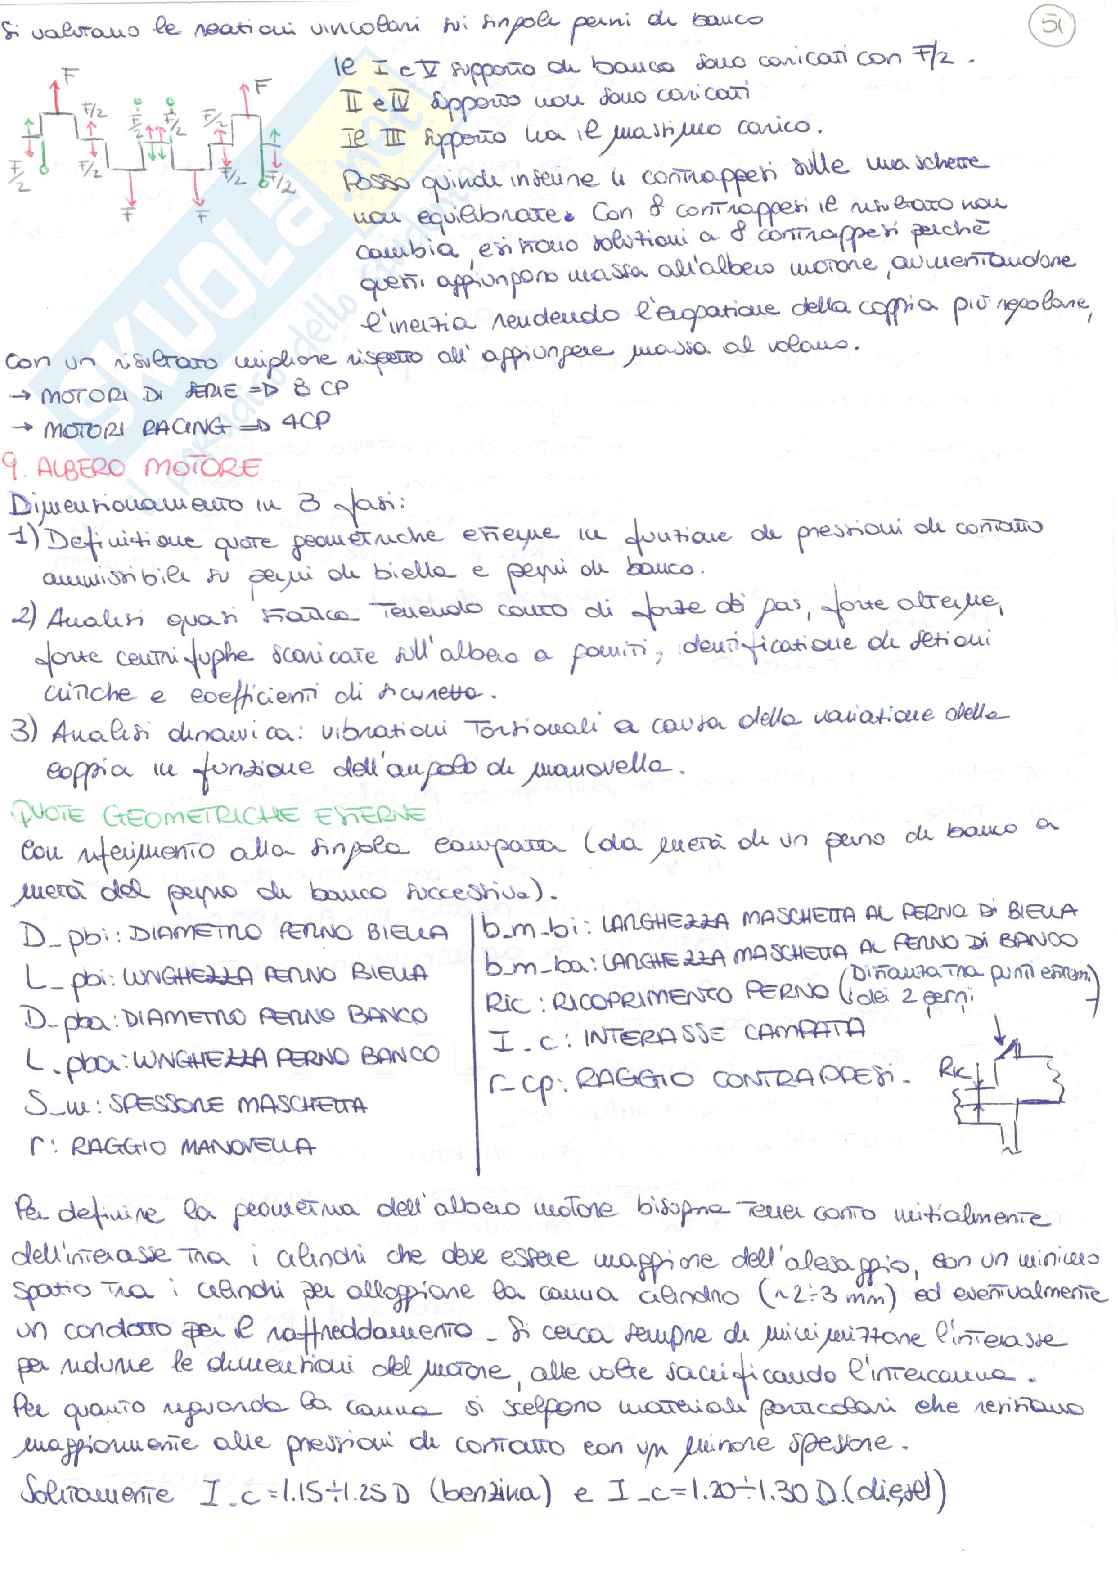 51
Si valutano le reazioni vincolari sui singoli perni di banco
F
F
F/2
F/2
F/2
F/2
F/2
F/2
F/2
F/2
F
F
Il I e V supporto di banco sono caricati con F/2.
II e IV supporto non sono caricati
Il III supporto ha il massimo carico.
Posso quindi inserire 4 contrappesi sulle maschette
non equilibrate. Con 8 contrappesi il risultato non
cambia, esistono soluzioni a 8 contrappesi perchè
questi aggiungono massa all'albero motore, aumentandone
l'inerzia rendendo l'erogazione della coppia più regolare,
con un risultato migliore rispetto all'aggiungere massa al volano.
→ MOTORI DI SERIE => 8 CP
→ MOTORI RACING => 4CP
9. ALBERO MOTORE
Dimensionamento in 3 fasi:
1) Definizione quote geometriche esterne in funzione di pressioni di contatto
ammissibili su perni di biella e perni di banco.
2) Analisi quasi statica tenendo conto di forze di gas, forze alterne,
forze centrifughe scaricate sull'albero a gomiti, identificazione di sezioni
critiche e coefficienti di sicurezza.
3) Analisi dinamica: vibrazioni torsionali a causa della variazione della
coppia in funzione dell'angolo di manovella.
QUOTE GEOMETRICHE ESTERNE
Con riferimento alla singola campata (da metà di un perno di banco a
metà del perno di banco successiva).
D_pbi: DIAMETRO PERNO BIELLA
L_pbi: LUNGHEZZA PERNO BIELLA
D_pba: DIAMETRO PERNO BANCO
L_pba: LUNGHEZZA PERNO BANCO
S_m: SPESSORE MASCHETTA
r: RAGGIO MANOVELLA
b_m_bi: LARGHEZZA MASCHETTA AL PERNO DI BIELLA
b_m_ba: LARGHEZZA MASCHETTA AL PERNO DI BANCO
Ric: RICOPRIMENTO PERNO (Distanza tra punti estremi
dei 2 perni)
I_c: INTERASSE CAMPATA
r_cp: RAGGIO CONTRAPPESI.
Ric
Per definire la geometria dell'albero motore bisogna tener conto inizialmente
dell'interasse tra i cilindri che deve essere maggiore dell'alesaggio, con un minimo
spazio tra i cilindri per alloggiare la canna cilindro (~2÷3 mm) ed eventualmente
un condotto per il raffreddamento. Si cerca sempre di minimizzare l'interasse
per ridurre le dimensioni del motore, alle volte sacrificando l'intercanna.
Per quanto riguarda la canna si scelgono materiali particolari che resistano
maggiormente alle pressioni di contatto con un minore spessore.
Solitamente I_c=1.15÷1.25D (benzina) e I_c=1.20÷1.30D (diesel)
SKUOLA.net